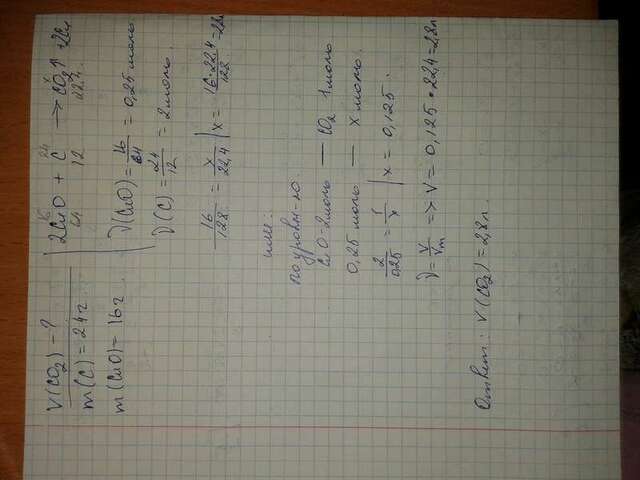 V(CO₂) - ?
m(C) = 24г
m(CuO) = 16г
16 24 x
2CuO + C → CO₂↑ + 2Cu
64 12 22.4
ν(CuO) = 16/64 = 0,25 моль
ν(C) = 24/12 = 2 моль.
16/128 = x/22,4 | x = 16·22,4/128 = 2,8л
или:
по уровн-ю.
CuO - 2 моль — CO₂ 1 моль
0,25 моль — x моль.
2/0,25 = 1/x | x = 0,125.
ν = V/Vm => V = 0,125 · 22,4 = 2,8л
Ответ: V(CO₂) = 2,8л.